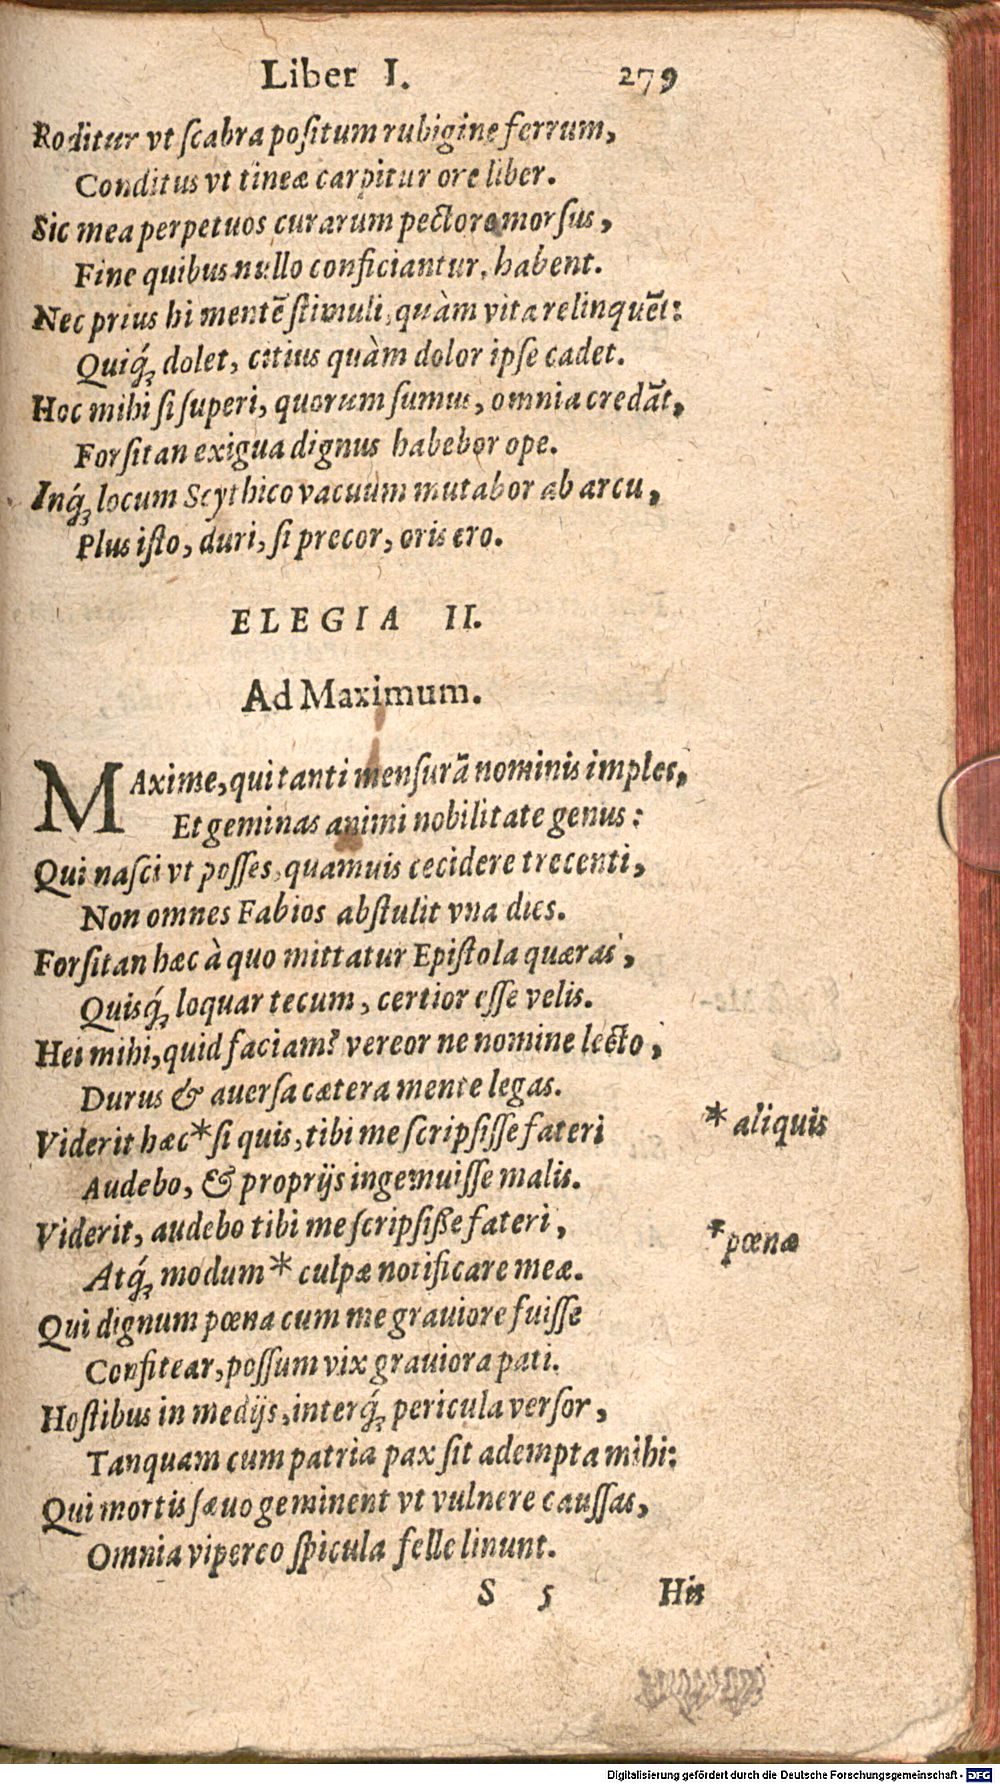 Liber I. 279
Roditur vt ſcabra poſitum rubigine ferrum,
Conditus vt tineæ carpitur ore liber.
Sic mea perpetuos curarum pectora morſus,
Fine quibus nullo conficiantur, habent.
Nec prius hi mentẽ ſtimuli, quàm vita relinquẽt:
Quiq́ꝫ dolet, citius quàm dolor ipſe cadet.
Hoc mihi ſi ſuperi, quorum ſumus, omnia credãt,
Forſitan exigua dignus habebor ope.
Inq́ꝫ locum Scythico vacuum mutabor ab arcu,
Plus iſto, duri, ſi precor, oris ero.
ELEGIA II.
Ad Maximum.
MAxime, qui tanti menſurã nominis imples,
Et geminas animi nobilitate genus:
Qui naſci vt poſſes, quamuis cecidere trecenti,
Non omnes Fabios abſtulit vna dies.
Forſitan hæc à quo mittatur Epiſtola quæras,
Quisq́ꝫ loquar tecum, certior eſſe velis.
Hei mihi, quid faciam? vereor ne nomine lecto,
Durus & auerſa cætera mente legas.
Viderit hæc* ſi quis, tibi me ſcripſiſſe fateri
* aliquis
Audebo, & proprijs ingemuiſſe malis.
Viderit, audebo tibi me ſcripſiße fateri,
Atq́ꝫ modum* culpæ notificare meæ.
* pœnæ
Qui dignum pœna cum me grauiore fuiſſe
Confitear, poſſum vix grauiora pati.
Hoſtibus in medijs, interq́ꝫ pericula verſor,
Tanquam cum patria pax ſit adempta mihi:
Qui mortis ſæuo geminent vt vulnere cauſſas,
Omnia vipereo ſpicula felle linunt.
S 5 His
Digitalisierung gefördert durch die Deutsche Forschungsgemeinschaft - DFG